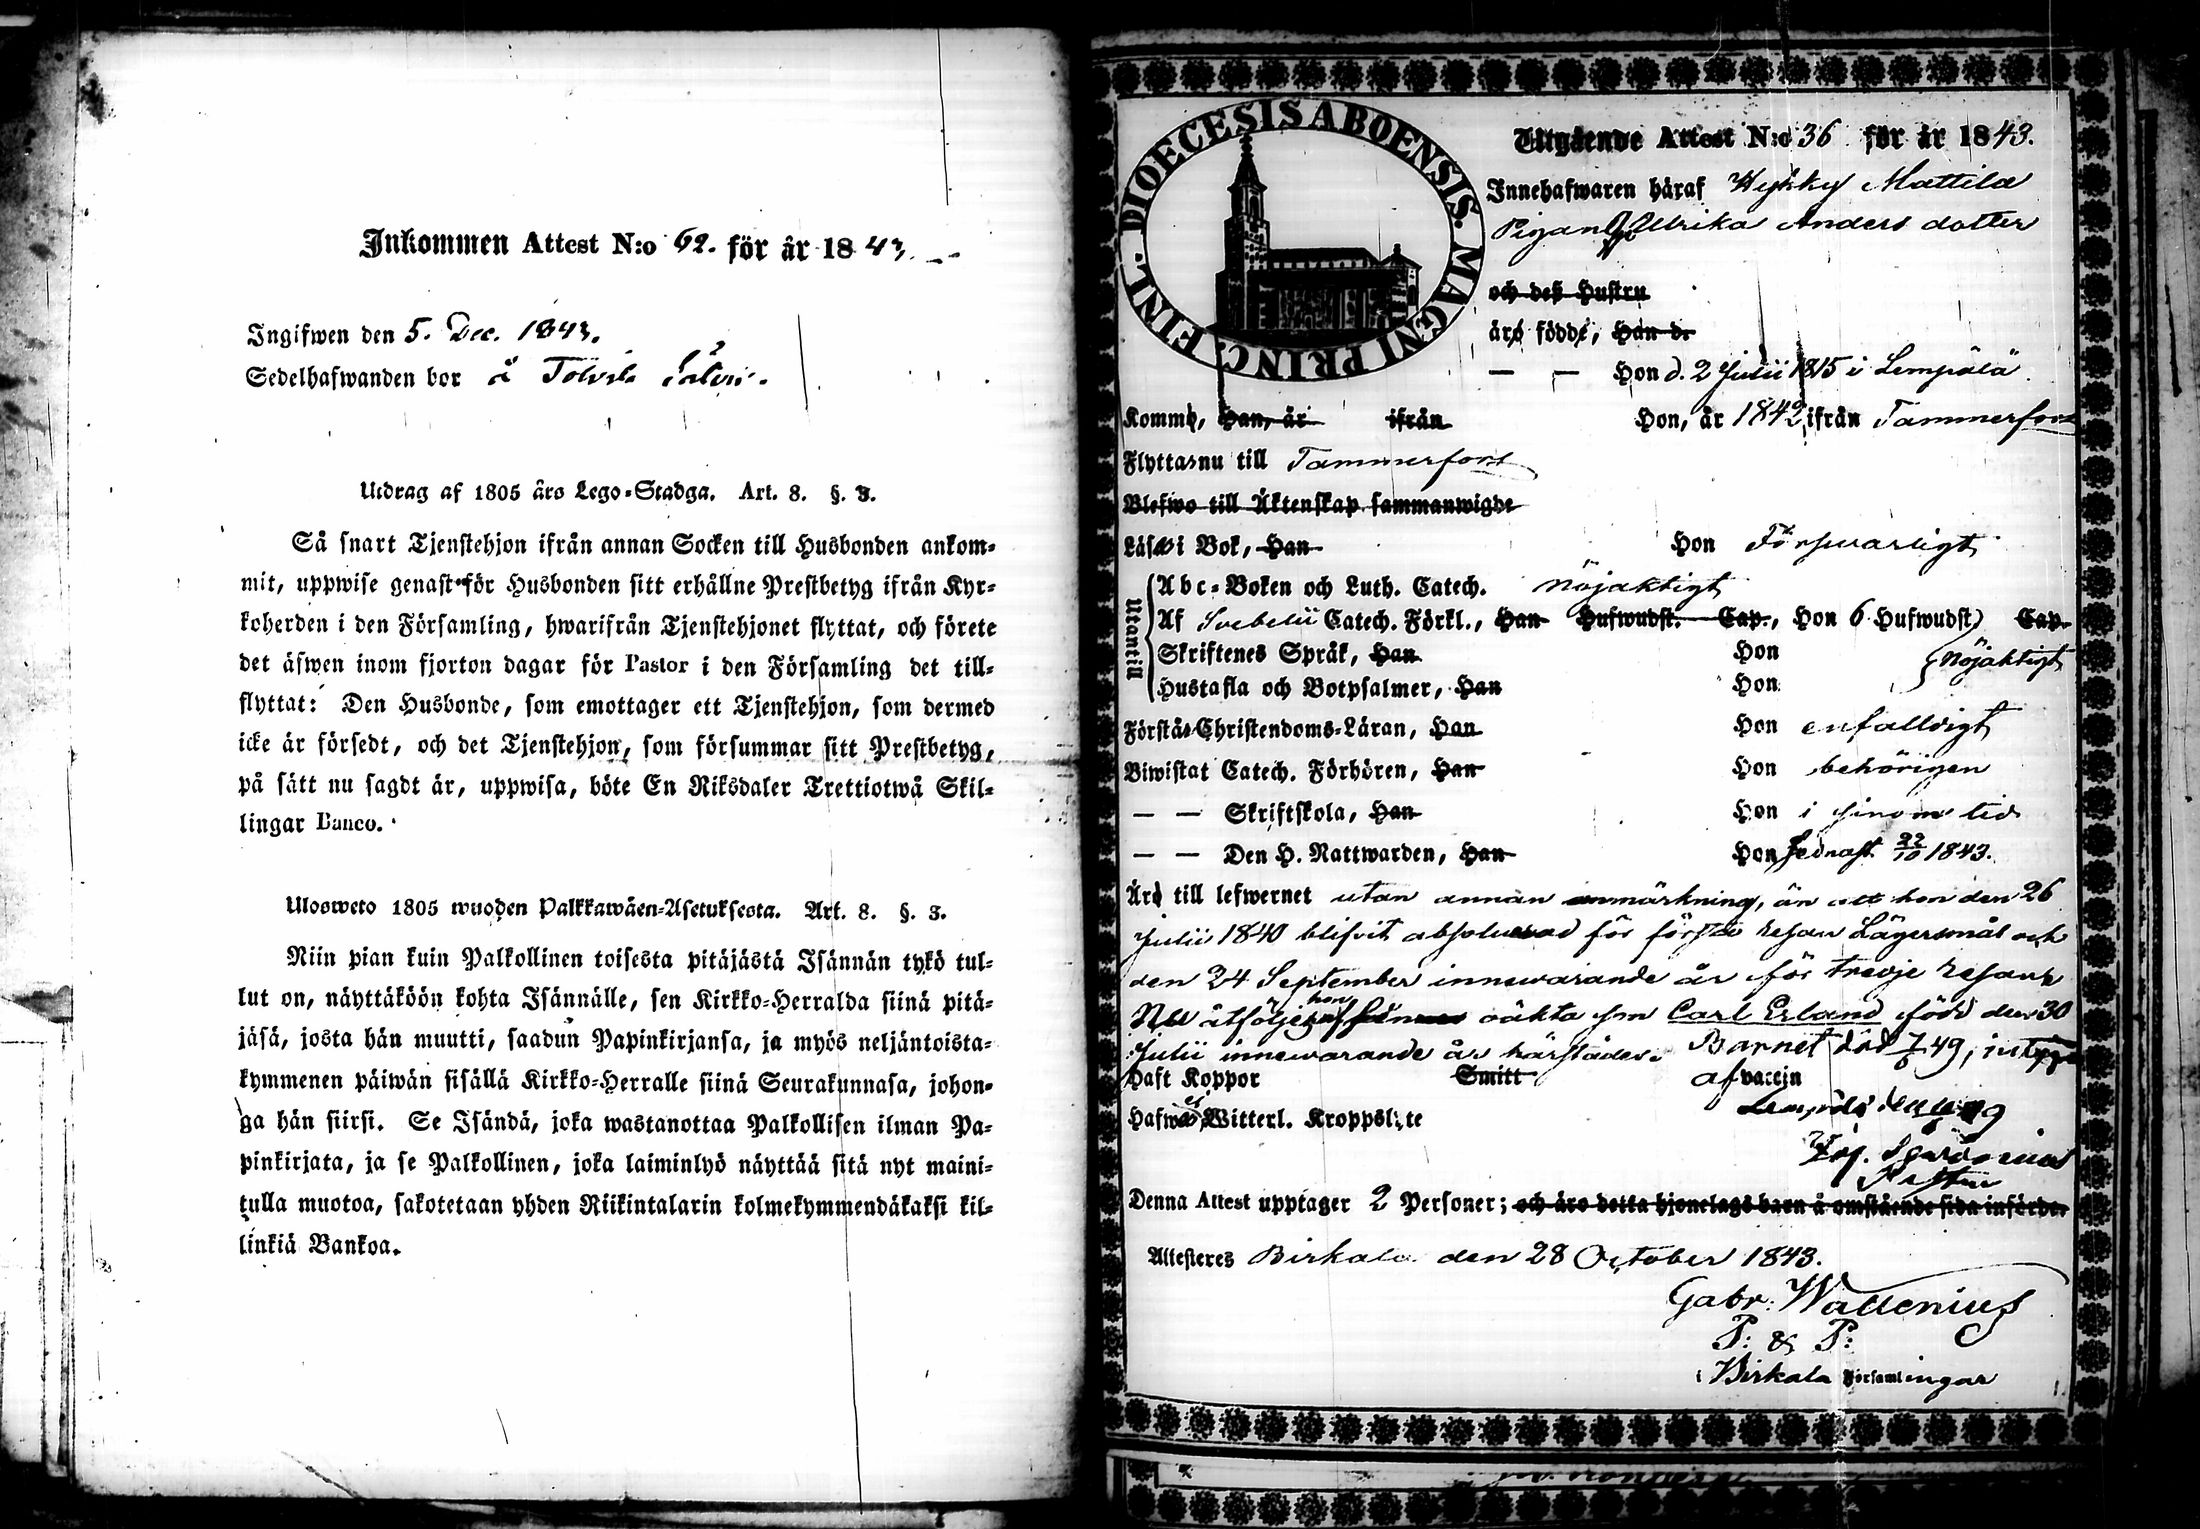 Inkommen Attest N:o 62. för år 1843.
Ingifwen den 5. Dec. 1843.
Sedelhafwanden bor å
Utdrag af 1805 års Lego-Stadga. Art. 8. §. 3.
Så snart Tjenstehjon ifrån annan Socken till Husbonden ankom-
mit, uppwise genast för Husbonden sitt erhållne Prestbetyg ifrån Kyr-
koherden i den Församling, hwarifrån Tjenstehjonet flyttat, och förete
det äfwen inom fjorton dagar för Pastor i den Församling det till-
flyttat: Den Husbonde, som emottager ett Tjenstehjon, som dermed
icke är försedt, och det Tjenstehjon, som försummar sitt Prestbetyg,
på sätt nu sagdt är, uppwisa, böte En Riksdaler Trettiotwå Skil-
lingar Banco.
Ulosweto 1805 wuoden Palkkawäen-Asetuksesta. Art. 8. §. 3.
Niin pian kuin Palkollinen toisesta pitäjästä Isännän tykö tul-
lut on, näyttäköön kohta Isännälle, sen Kirkko-Herralda siinä pitä-
jäsä, josta hän muutti, saadun Papinkirjansa, ja myös neljäntoista-
kymmenen päiwän sisällä Kirkko-Herralle siinä Seurakunnasa, johon-
ga hän siirsi. Se Isändä, joka wastanottaa Palkollisen ilman Pa-
pinkirjata, ja se Palkollinen, joka laiminlyö näyttää sitä nyt maini-
tulla muotoa, sakotetaan yhden Riikintalarin kolmekymmendäkaksi kil-
linkiä Bankoa.
DIOECESIS ABOENSIS. MAGNI PRINC. FINL.
Utgående Attest N:o 36 för år 1843.
Innehafwaren häraf Hykky Mattila
Pigan Ulrika Anders dotter
och deß Hustru
äro födde, Han d.
— — Hon d. 2 Julii 1815 i Lempälä
Komme, Han, år ifrån Hon, år 1842 ifrån Tammerfors
Flyttar nu till Tammerfors
Blefwo till Äktenskap sammanwigde
Läser i Bok, Han Hon Försvarligt
Utantill
Abc-Boken och Luth. Catech. nöjaktigt
Af Svebelii Catech. Förkl., Han Hufwudst. Cap., Hon 6 Hufwudst) Cap.
Skriftenes Språk, Han Hon nöjaktigt
Hustafla och Botpsalmer, Han Hon
Förstår Christendoms-Läran, Han Hon enfalldigt
Biwistat Catech. Förhören, Han Hon behörigen
— — Skriftskola, Han Hon i sinom tid
— — Den H. Nattwarden, Han Hon sednast 22/10 1843.
Äro till lefwernet utan annan anmärkning, än att hon den 26
Julii 1840 blifvit absolverad för första resan Lägersmål och
den 24 September innewarande år för tredje resan
Nu åtföljer hon oäkta son Carl Erland född den 30
Julii innewarande år härstädes. Barnet död 7/6 49,
Haft Koppor Smitt af vaccin
Hafwa ej Witterl. Kroppslyte
Denna Attest upptager 2 Personer; och äro detta hjonelags barn å omstående sida införde.
Attesteres Birkala den 28 October 1843.
Gabr. Wallenius
P: & P:
i Birkala Församlingar